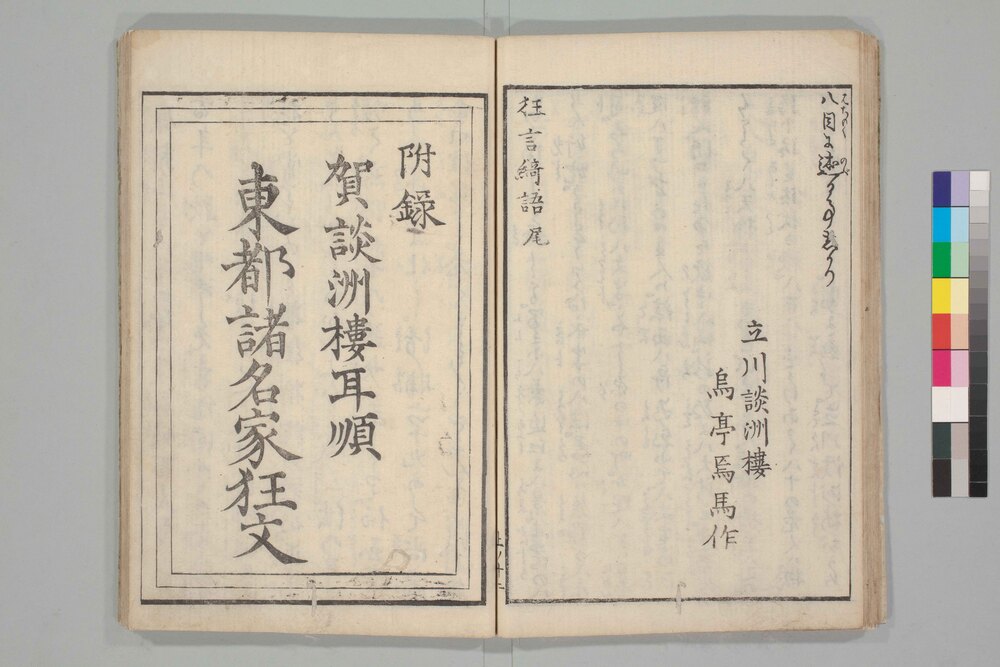 八目に遊
立川談洲樓
烏亭焉馬作
狂言綺語尾
附録
賀談洲樓耳順
東都諸名家狂文